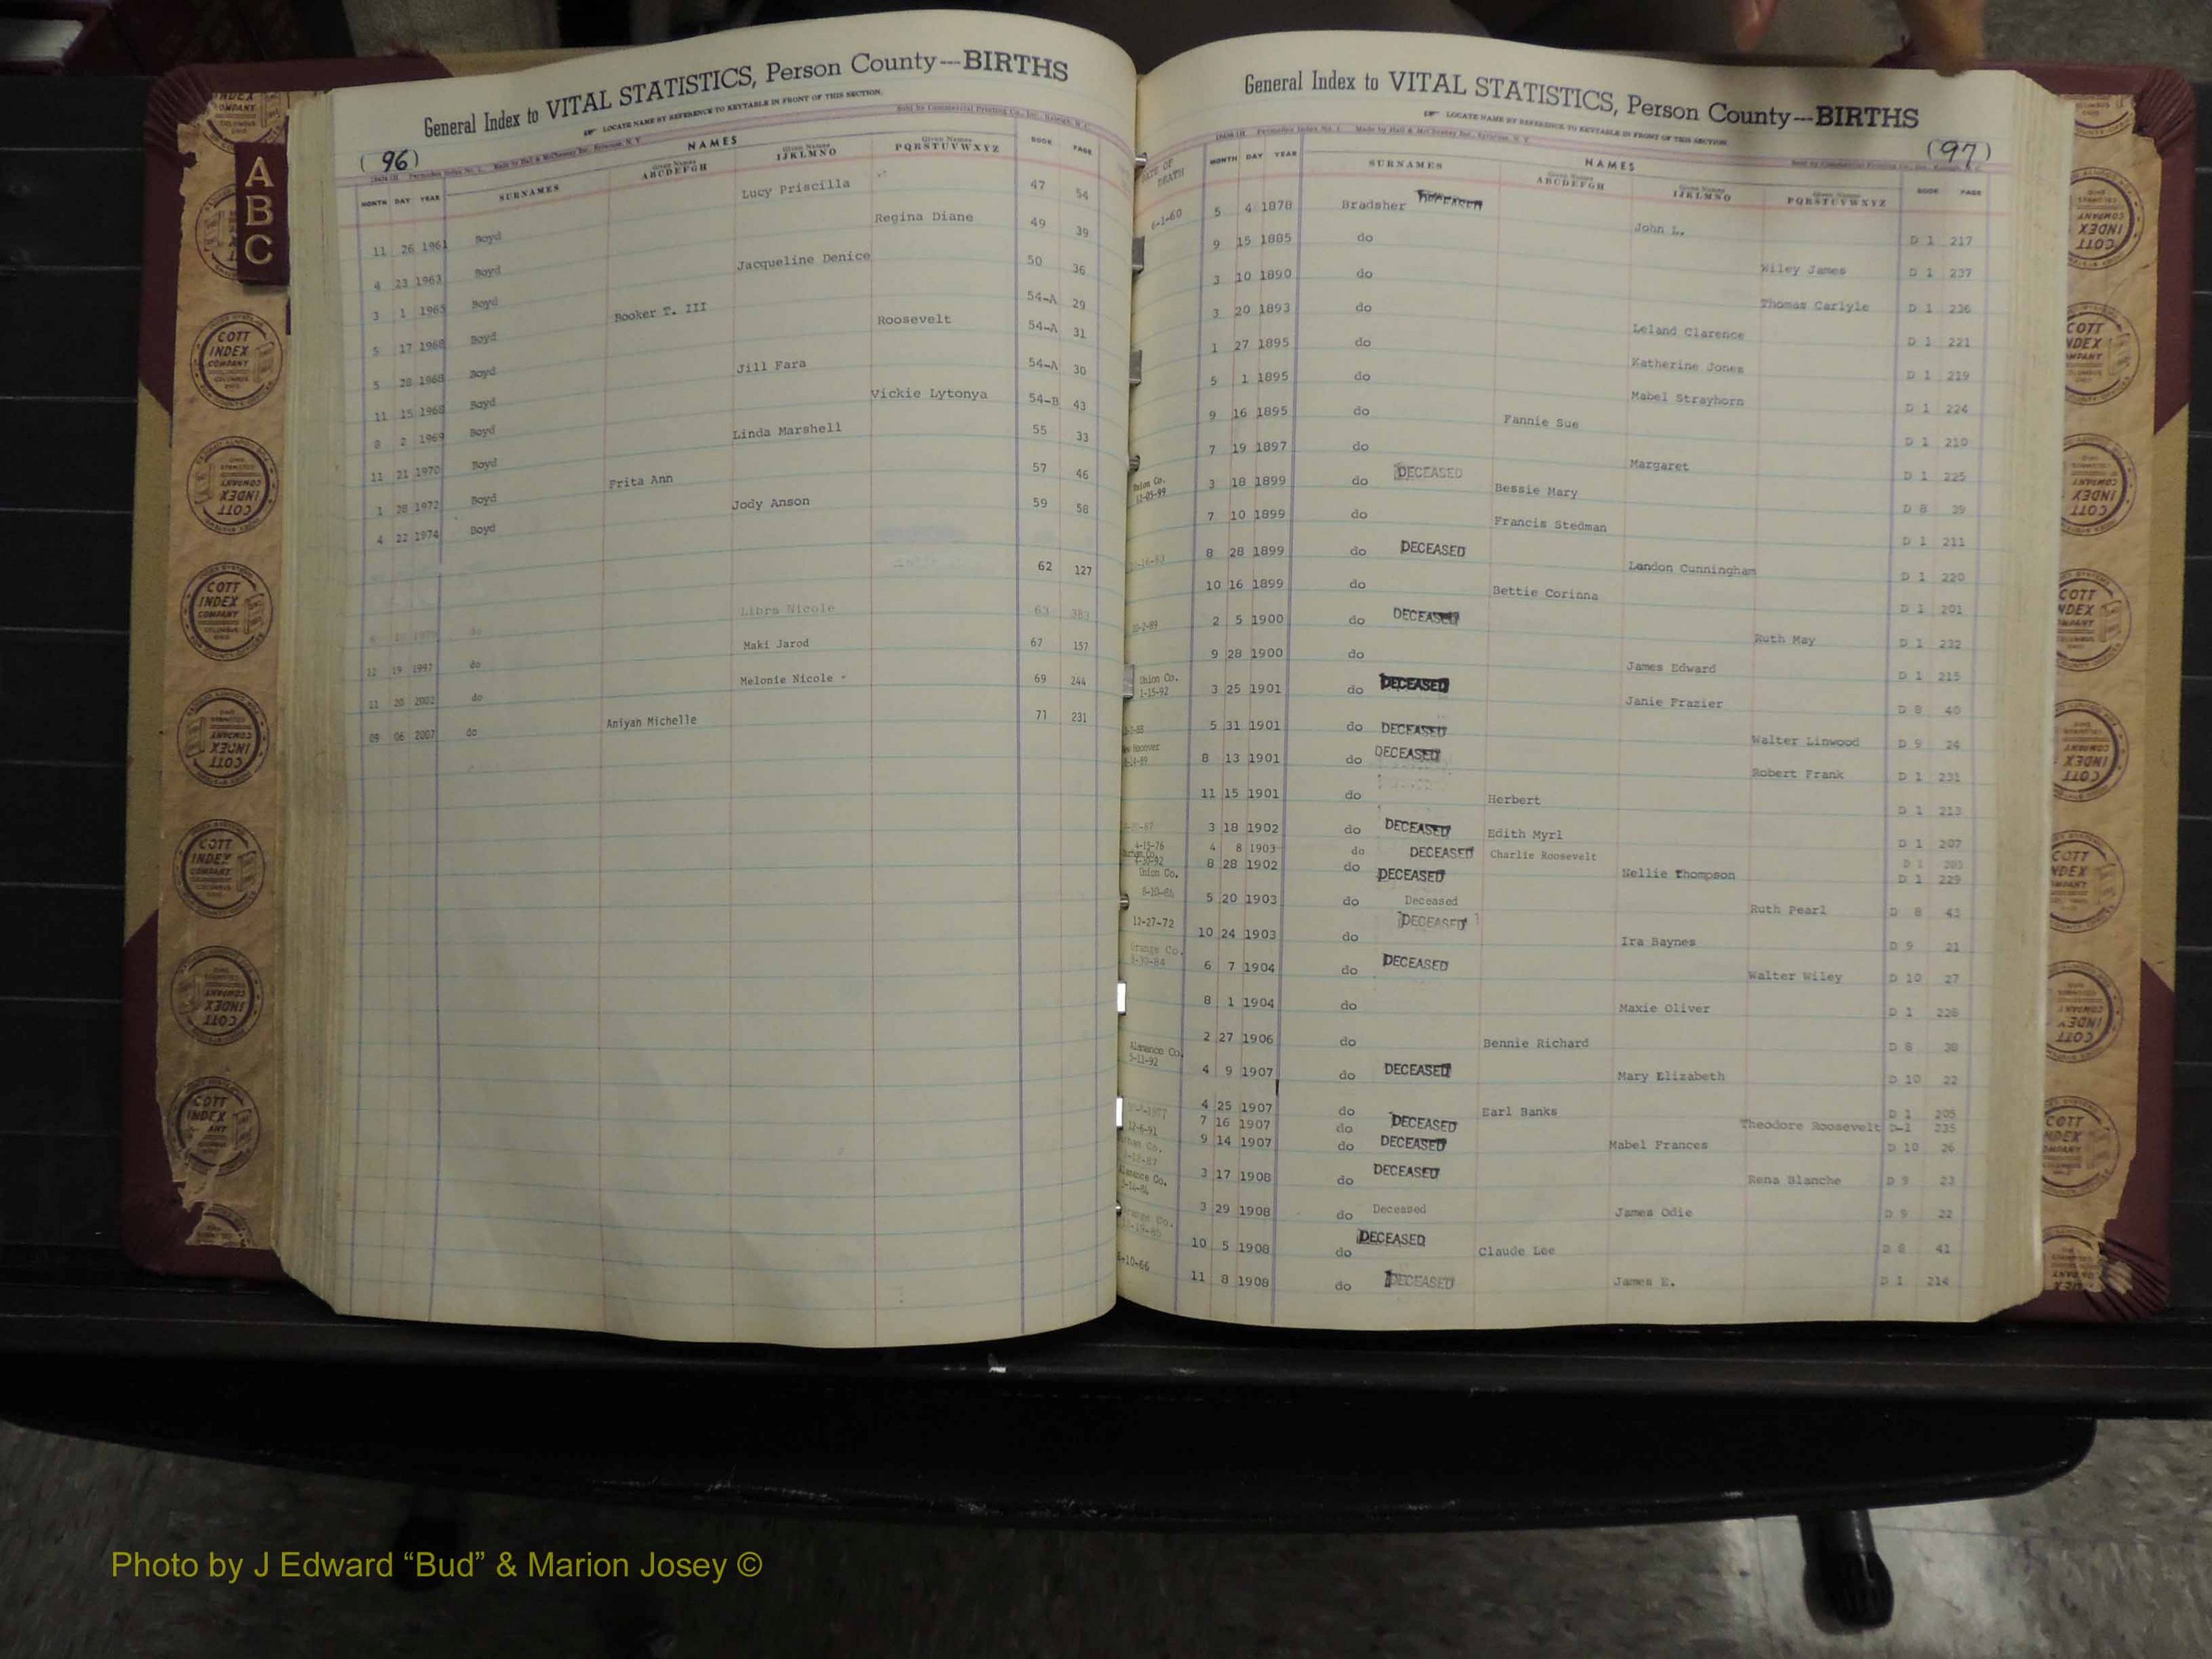 General Index to VITAL STATISTICS, Person County---BIRTHS
LOCATE NAME BY REFERENCE TO KEYTABLE IN FRONT OF THIS SECTION.
(96)
Sold by Commercial Printing Co., Inc., Raleigh, N. C.
NAMES
MONTH DAY YEAR SURNAMES Given Names ABCDEFGH Given Names IJKLMNO Given Names PQRSTUVWXYZ BOOK PAGE
11 26 1961 Boyd Lucy Priscilla 47 54
4 23 1963 Boyd Regina Diane 49 39
3 1 1965 Boyd Jacqueline Denice 50 36
5 17 1968 Boyd Booker T. III 54-A 29
5 28 1968 Boyd Roosevelt 54-A 31
11 15 1968 Boyd Jill Fara 54-A 30
8 2 1969 Boyd Vickie Lytonya 54-B 43
11 21 1970 Boyd Linda Marshell 55 33
1 28 1972 Boyd Frita Ann 57 46
4 22 1974 Boyd Jody Anson 59 58
62 127
do Libra Nicole 63 383
12 19 1997 do Maki Jarod 67 157
11 20 2002 do Melonie Nicole 69 244
09 06 2007 do Aniyah Michelle 71 231
General Index to VITAL STATISTICS, Person County---BIRTHS
LOCATE NAME BY REFERENCE TO KEYTABLE IN FRONT OF THIS SECTION
(97)
NAMES
DATE OF DEATH MONTH DAY YEAR SURNAMES Given Names ABCDEFGH Given Names IJKLMNO Given Names PQRSTUVWXYZ BOOK PAGE
6-1-60 5 4 1878 Bradsher DECEASED John L. D 1 217
9 15 1885 do Wiley James D 1 237
3 10 1890 do Thomas Carlyle D 1 236
3 20 1893 do Leland Clarence D 1 221
1 27 1895 do Katherine Jones D 1 219
5 1 1895 do Mabel Strayhorn D 1 224
9 16 1895 do Fannie Sue D 1 210
7 19 1897 do Margaret D 1 225
Union Co. 12-05-99 3 18 1899 do DECEASED Bessie Mary D 8 39
7 10 1899 do Francis Stedman D 1 211
8 28 1899 do DECEASED Landon Cunningham D 1 220
10 16 1899 do Bettie Corinna D 1 201
2 5 1900 do DECEASED Ruth May D 1 232
9 28 1900 do James Edward D 1 215
Union Co. 1-15-92 3 25 1901 do DECEASED Janie Frazier D 8 40
5 31 1901 do DECEASED Walter Linwood D 9 24
8 13 1901 do DECEASED Robert Frank D 1 231
11 15 1901 do Herbert D 1 213
3 18 1902 do DECEASED Edith Myrl D 1 207
4-15-76 4 8 1903 do DECEASED Charlie Roosevelt D 1
4-30-92 Union Co. 8 28 1902 do DECEASED Nellie Thompson D 1 229
8-10-84 5 20 1903 do Deceased Ruth Pearl D 8 43
12-27-72 10 24 1903 do DECEASED Ira Baynes D 9 21
Orange Co. 6 7 1904 do DECEASED Walter Wiley D 10 27
8 1 1904 do Maxie Oliver D 1 226
2 27 1906 do Bennie Richard D 8 38
Alamance Co. 5-11-92 4 9 1907 do DECEASED Mary Elizabeth D 10 22
4 25 1907 do Earl Banks D 1 205
7 16 1907 do DECEASED Theodore Roosevelt D-1 235
12-6-91 9 14 1907 do DECEASED Mabel Frances D 10 26
3 17 1908 do DECEASED Rena Blanche D 9 23
3 29 1908 do Deceased James Odie D 9 22
10 5 1908 do DECEASED Claude Lee D 8 41
11 8 1908 do DECEASED James E. D 1 214
A
B
C
COTT INDEX COMPANY
Photo by J Edward “Bud” & Marion Josey ©